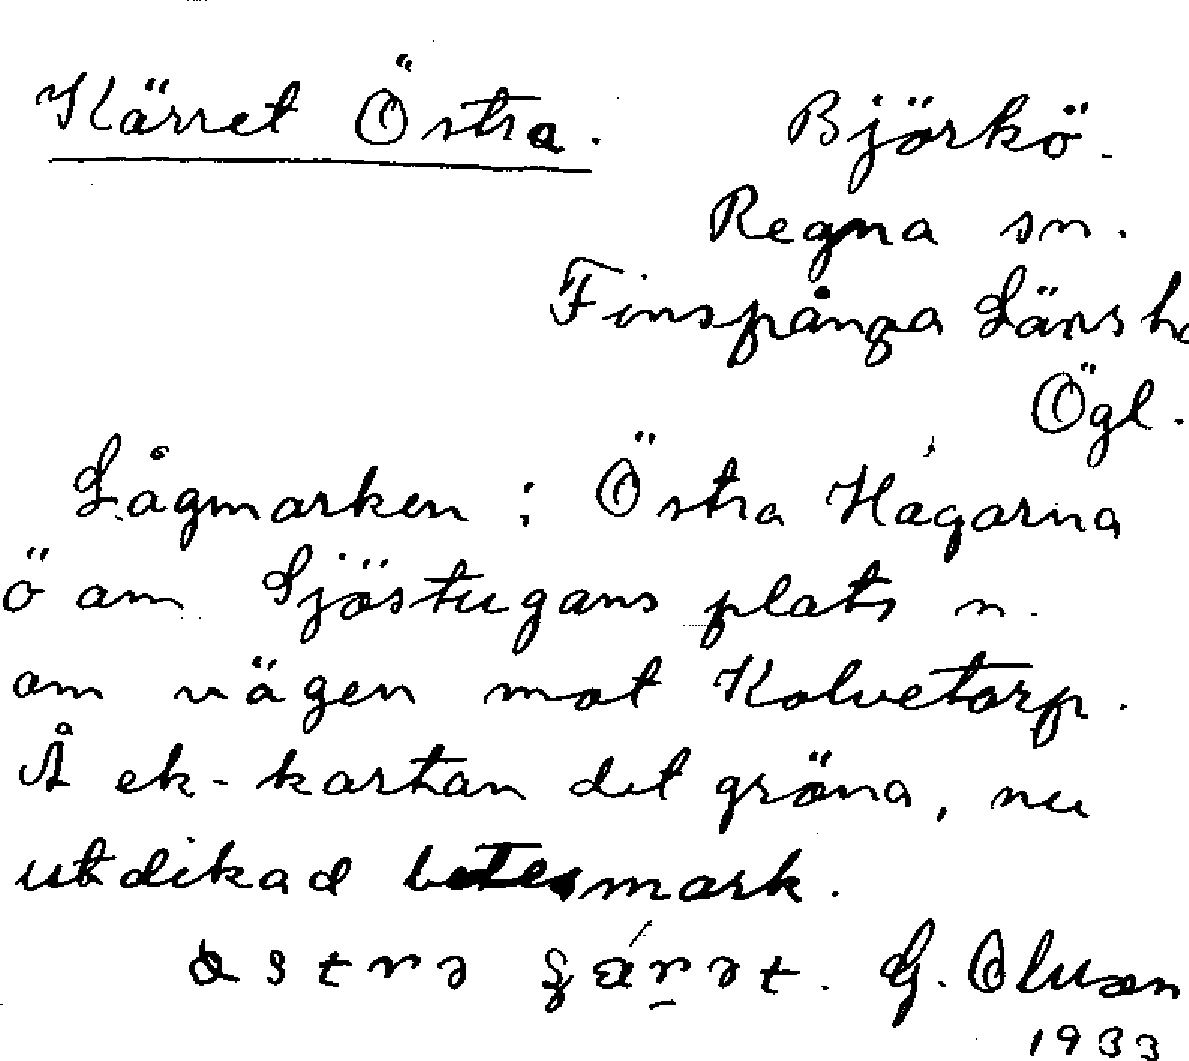 Kärret Östra. Björkö.
Regna sn.
Finspånga Länsh
Ögl.
Lågmarken i Östra Hagarna
ö om Sjöstugans plats n.
om vägen mot Kolvetorp.
Å ek-kartan det gröna, nu
utdikad betesmark.
G. Olsson
1933